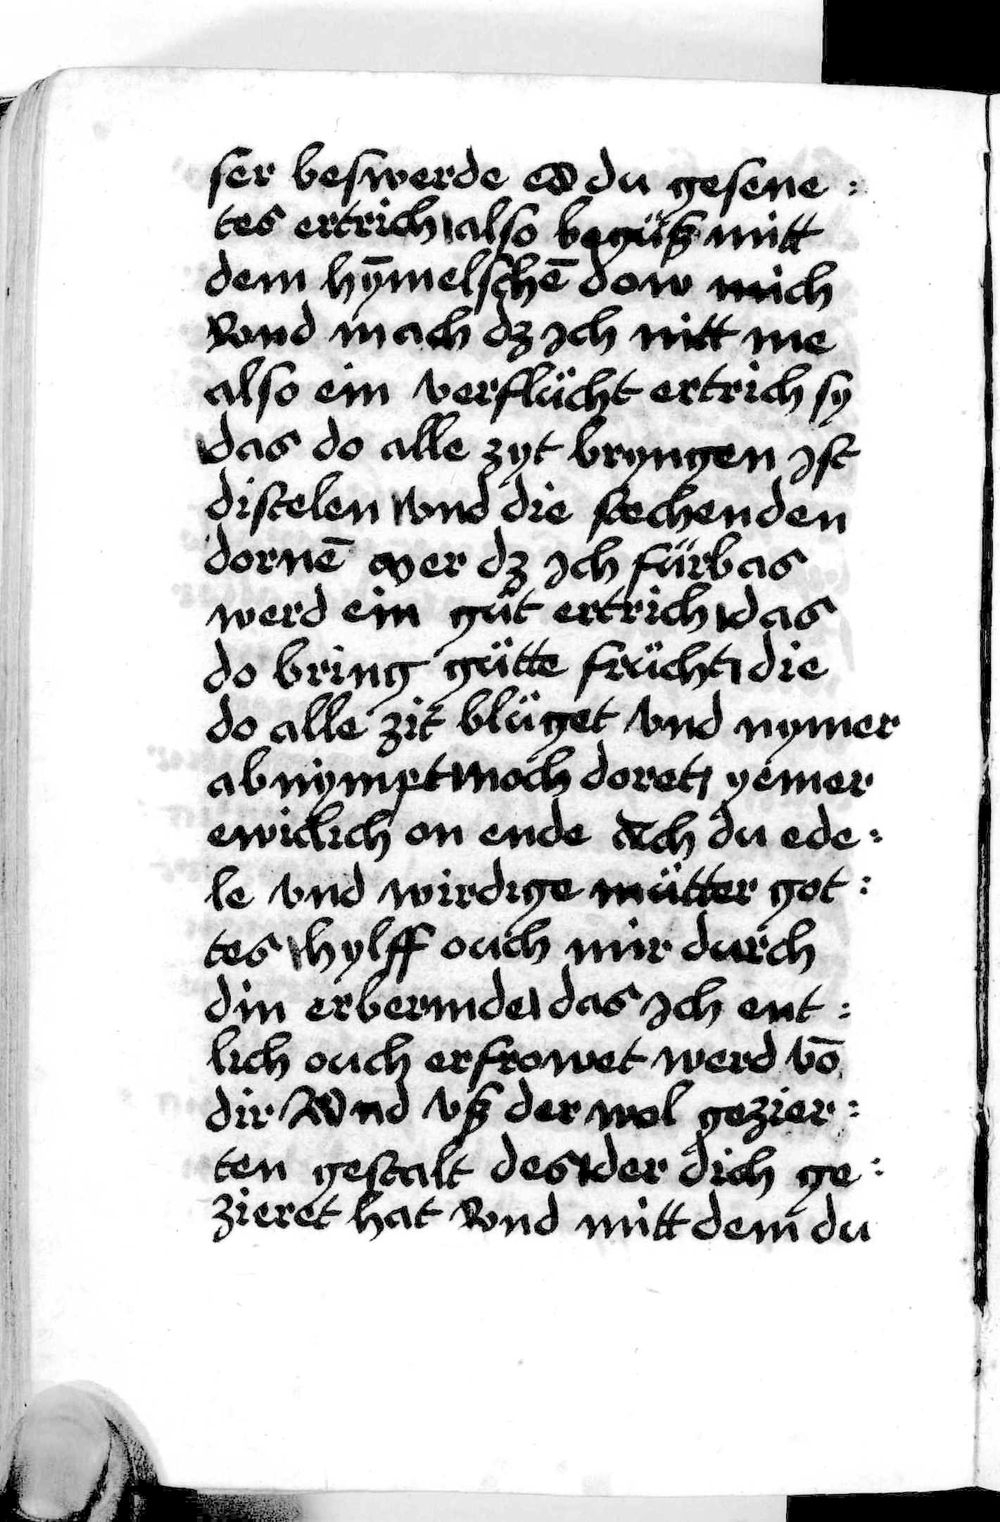 ser beswerde O du gesene :
tes ertrich also begüß mitt
dem hȳmelschē dow mich
Vnd mach dz ich nitt me
also ein verflücht ertrich sy
das do alle zyt bryngen ist
distelen vnd die stechenden
dornē Mer dz ich fürbas
werd ein güt ertrich das
do bring gütte frücht die
do alle zit blüget vnd nymer
abnympt noch doret yemer
ewiclich on ende Ach du ede :
le vnd wirdige mütter got :
tes hylff ouch mir durch
din erbermde das ich ent :
lich ouch erfrowet werd vō
dir Vnd vß der wol gezier :
ten gestalt des der dich ge :
zieret hat Vnd mitt dem du